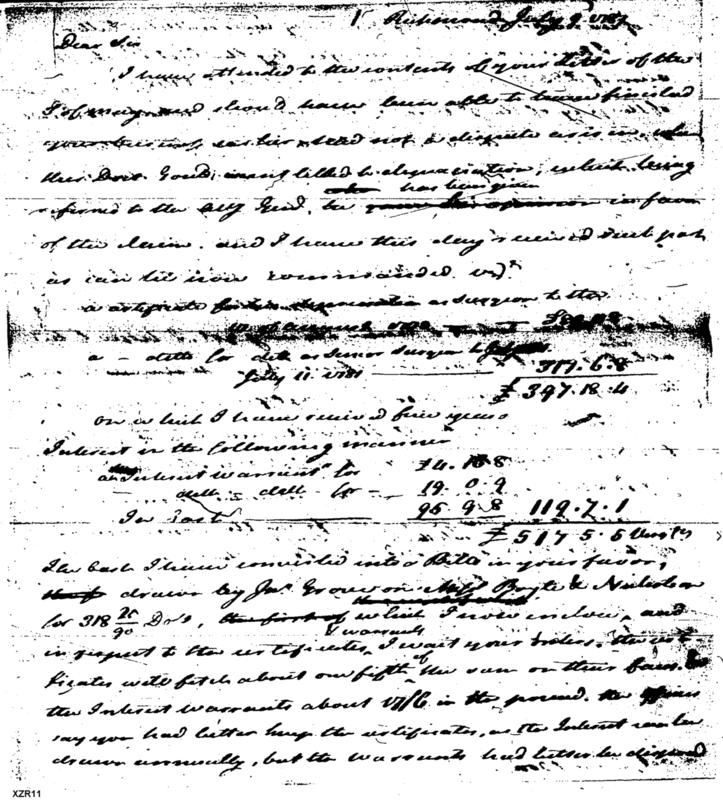 Richmond July 9. 1787
Dear Sir
I have attended to the contents of your Letter of the
of may, and should have been able to have finished
your business earlier, had not a dispute arisen, when
this Dois. Goud; depreciation, which being
has been given
referred to the Atty Genl. he in favor
of the claim. and I have this day received such part
as can be now commanded. vizt
a certificate as Surgeon to the
a - ditto for ditto as Senior Surgeon to
July 11. 1781 317.6.8
£ 397.18.4
on which I have received five years
Interest in the following manner
an Interest warrant for £4.
ditto - ditto - for - 19.0.9
In Cash 95.9.8 119.7.1
£ 517.5.5
The cash I have converted into a Bill in your favor,
drawn by Jas. on Messrs Boyle & Nicholson
for 318 /90 Drs, the first of which I now inclose, and
& warrants
in respect to the certificates, I wait your orders. the certi
ficates will fetch about one fifth of the sum on their faces. &
the Interest warrants about 17/6 in the pound. the
say you had better keep the certificates, as the Interest can be
drawn annually, but the warrants had better be disposed
XZR11